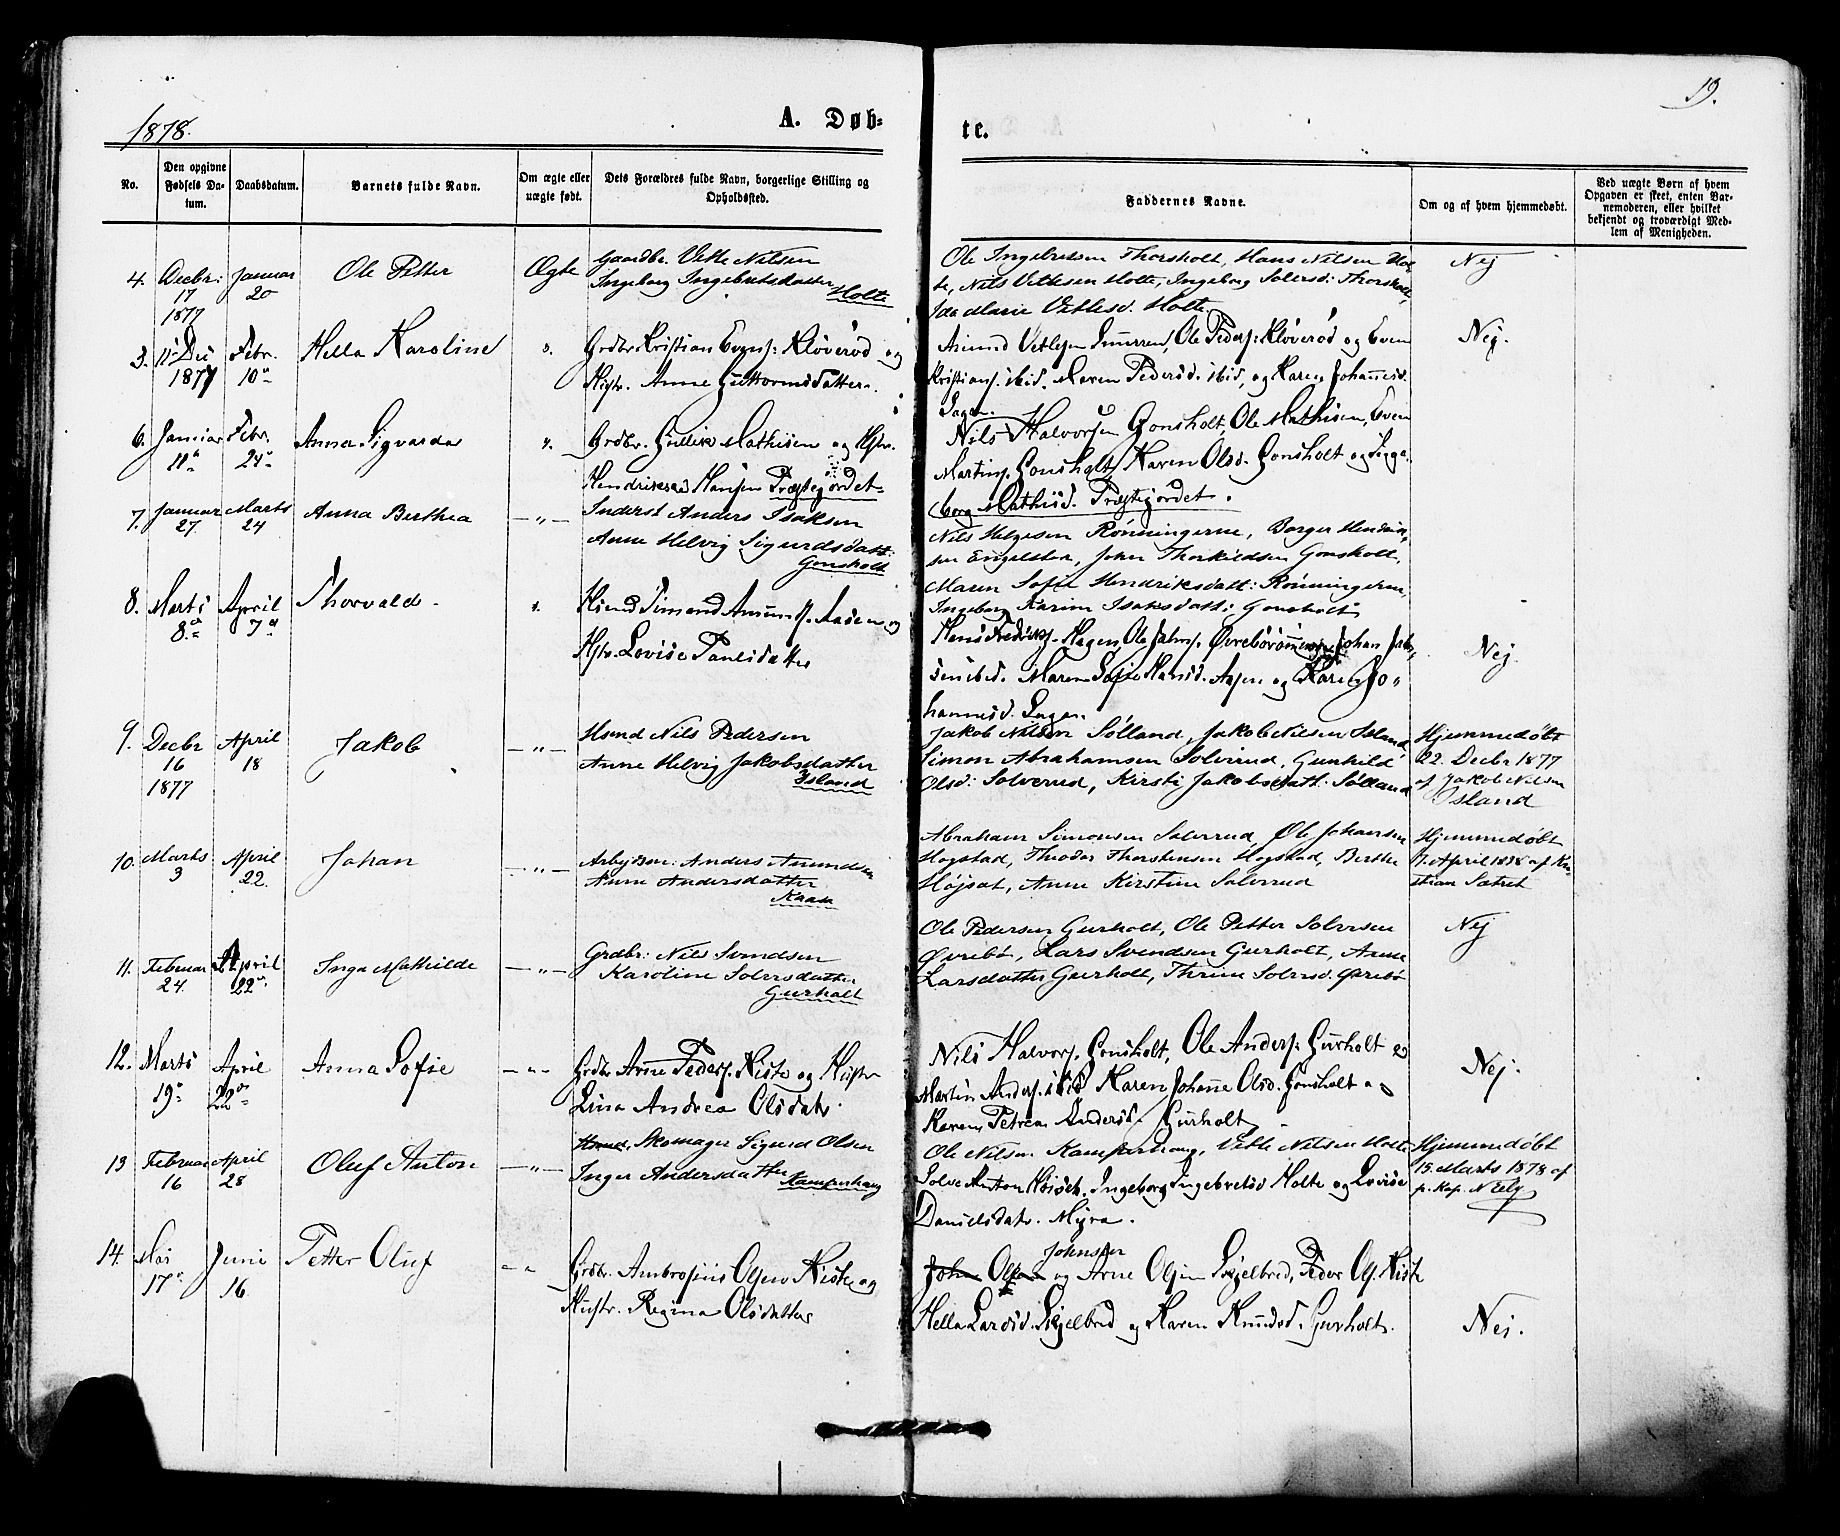 1878.
A. Døb-
te.
19.
No.
Den opgivne Fødsels Da-
tum.
Daabsdatum.
Barnets fulde Navn.
Om ægte eller
uægte født.
Dets Forældres fulde Navn, borgerlige Stilling og
Opholdssted.
Faddernes Navne.
Om og af hvem hjemmedøbt.
Ved uægte Børn af hvem
Opgaven er skeet, enten Bar-
nemoderen, eller hvilket
bekjendt og troværdigt Med-
lem af Menigheden.
4. Decbr: 17 1877
Januar 20
Ole Petter
Ægte
Gaardbr. Vetle Nilsen
Ingeborg Ingebretsdatter
Holte
Ole Ingebretsen Thorsholt, Hans Nilsen Hol-
te, Nils Vetlesen Holte, Ingeborg Solvesd: Thorsholt,
Ida Marie Vetlesd. Holte
Nej
11 Des 1877
Febr. 10
Hella Karoline
Grdbr Kristian Evens: Kløverød og
Hstr. Anne Guttormsdatter
Amund Vetlesen, Ole Peders: Kløverød og Even
Kristians. ibid, Maren Pedersd. ibid, og Karen Johannesd.
Sagen.
Nej.
6. Januar 11
Febr. 24
Anna Sigvarda
Grdbr. Gullik Mathisen og Hstr.
Hansen Præstejordet
Nils Halvorsen Gonsholt, Ole Mathisen, Even
Martins. Gonsholt, Karen Olsd. Gonsholt og Inge-
borg Mathisd. Præstejordet.
7. Januar 27
Marts 24
Anna Berthea
— " —
Inderst Anders Isaksen
Anne Helvig Sigurdsdatt:
Gonsholt
Nils Helgesen Rønningerne, Borger Hendrik-
sen Engelstea, John Thorkildsen Gonsholt,
Maren Sofie Hendriksdatt: Rønningerne,
Ingeborg Karine Isaksdatt: Gonsholt
8. Marts 8
April 7
Thorvald
Hsmd Simond Amunds. Aasen og
Hstr. Lovise Paulsdatter
Hans Fredriks. Hagen, Ole Johns. Johan Joh-
sen ibid. Maren Sofie Hansd. Aasen og Karen Jo-
hannesd. Sagen.
Nej.
9. Decbr 16 1877
April 18
Jakob
— " —
Hsmd Nils Pedersen
Anne Helvig Jakobsdatter
Island
Jakob Nilsen Sølland, Jakob Nilsen Island
Simon Abrahamsen Solverud, Gunhild
Olsd: Solverud, Kirsti Jakobsdatt. Sølland
Hjemmedøbt
22. Decbr 1877
af Jakob Nilsen
Island
10. Marts 3
April 22.
Johan
— " —
Arbejdsm: Anders Amundsen
Anne Andersdatter
Kaasa
Abraham Simonsen Solverud, Ole Johansen
Hogstad, Theodor Thorstensen Hogstad, Berthe
Højsæt, Anne Kirstine Solverud
Hjemmedøbt
April 1878 af Kri-
stian Sætret
11. Februar 24.
April 22
Inga Mathilde
— " —
Grdbr: Nils Svendsen
Karoline Solvesdatter
Gurholt
Ole Pedersen Gurholt, Ole Petter Solvesen
Øvrebø, Lars Svendsen Gurholt, Anne
Larsdatter Gurholt, Thrine Solvesd. Øvrebø
Nej
12. Marts 19
April 22
Anna Sofie
— " —
Grdbr Arne Peders. Kiste og Hustr
Lina Andrea Olsdatr.
Nils Halvors. Gonsholt, Ole Anders: Gurholt og
Martin Anders. ibid Karen Johanne Olsd. Gonsholt og
Karen Petrea Andersd. Gurholt
Nej.
13 Februar 16
April 28
Oluf Anton
— " —
Hsmd. Skomager Sigurd Olsen
Inger Andersdatter
Kamperhaug
Ole Nilsen Kamperhaug, Vetle Nilsen Holte
Solve Anton, Ingeborg Ingebretsd Holte og Lovise
Danielsdatr. Myra.
Hjemmedøbt
15. Marts 1878 af
p. Kap. Neely
14. Mai 17
Juni 16
Petter Oluf
Grdbr. Ambrosius Olsen Kiste og
Hustr. Regina Olsdatter
Johnsen
John Olsen og Arne Olsen Skjelbred, Peder Ols. Kiste
Hella Larsd. Skjelbred og Karen Knudsd. Gurholt.
Nej.